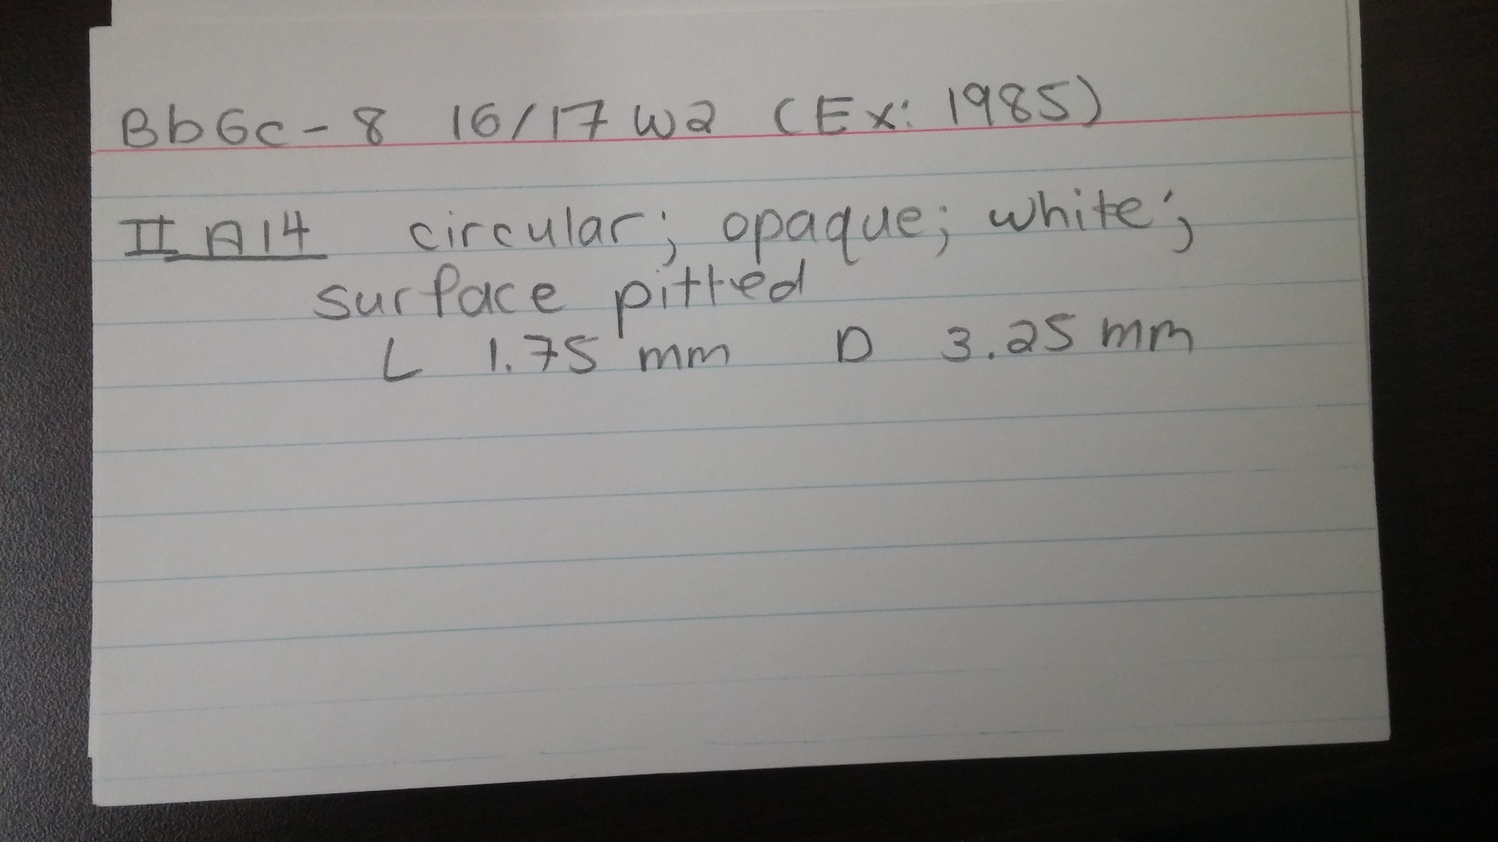 BbGc-8 16/17 W2 (Ex: 1985)
II A14 circular; opaque; white;
surface pitted
L 1.75 mm D 3.25 mm